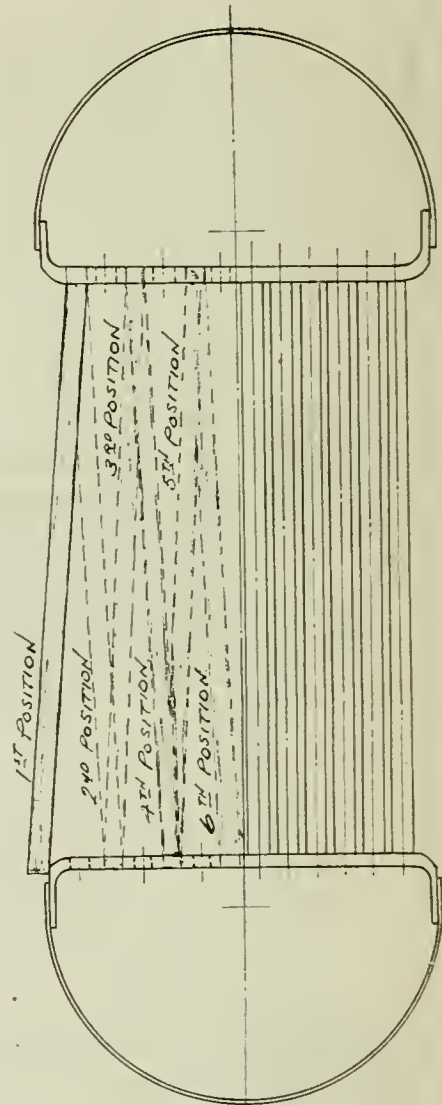 1ST POSITION
2ND POSITION
3RD POSITION
4TH POSITION
5TH POSITION
6TH POSITION